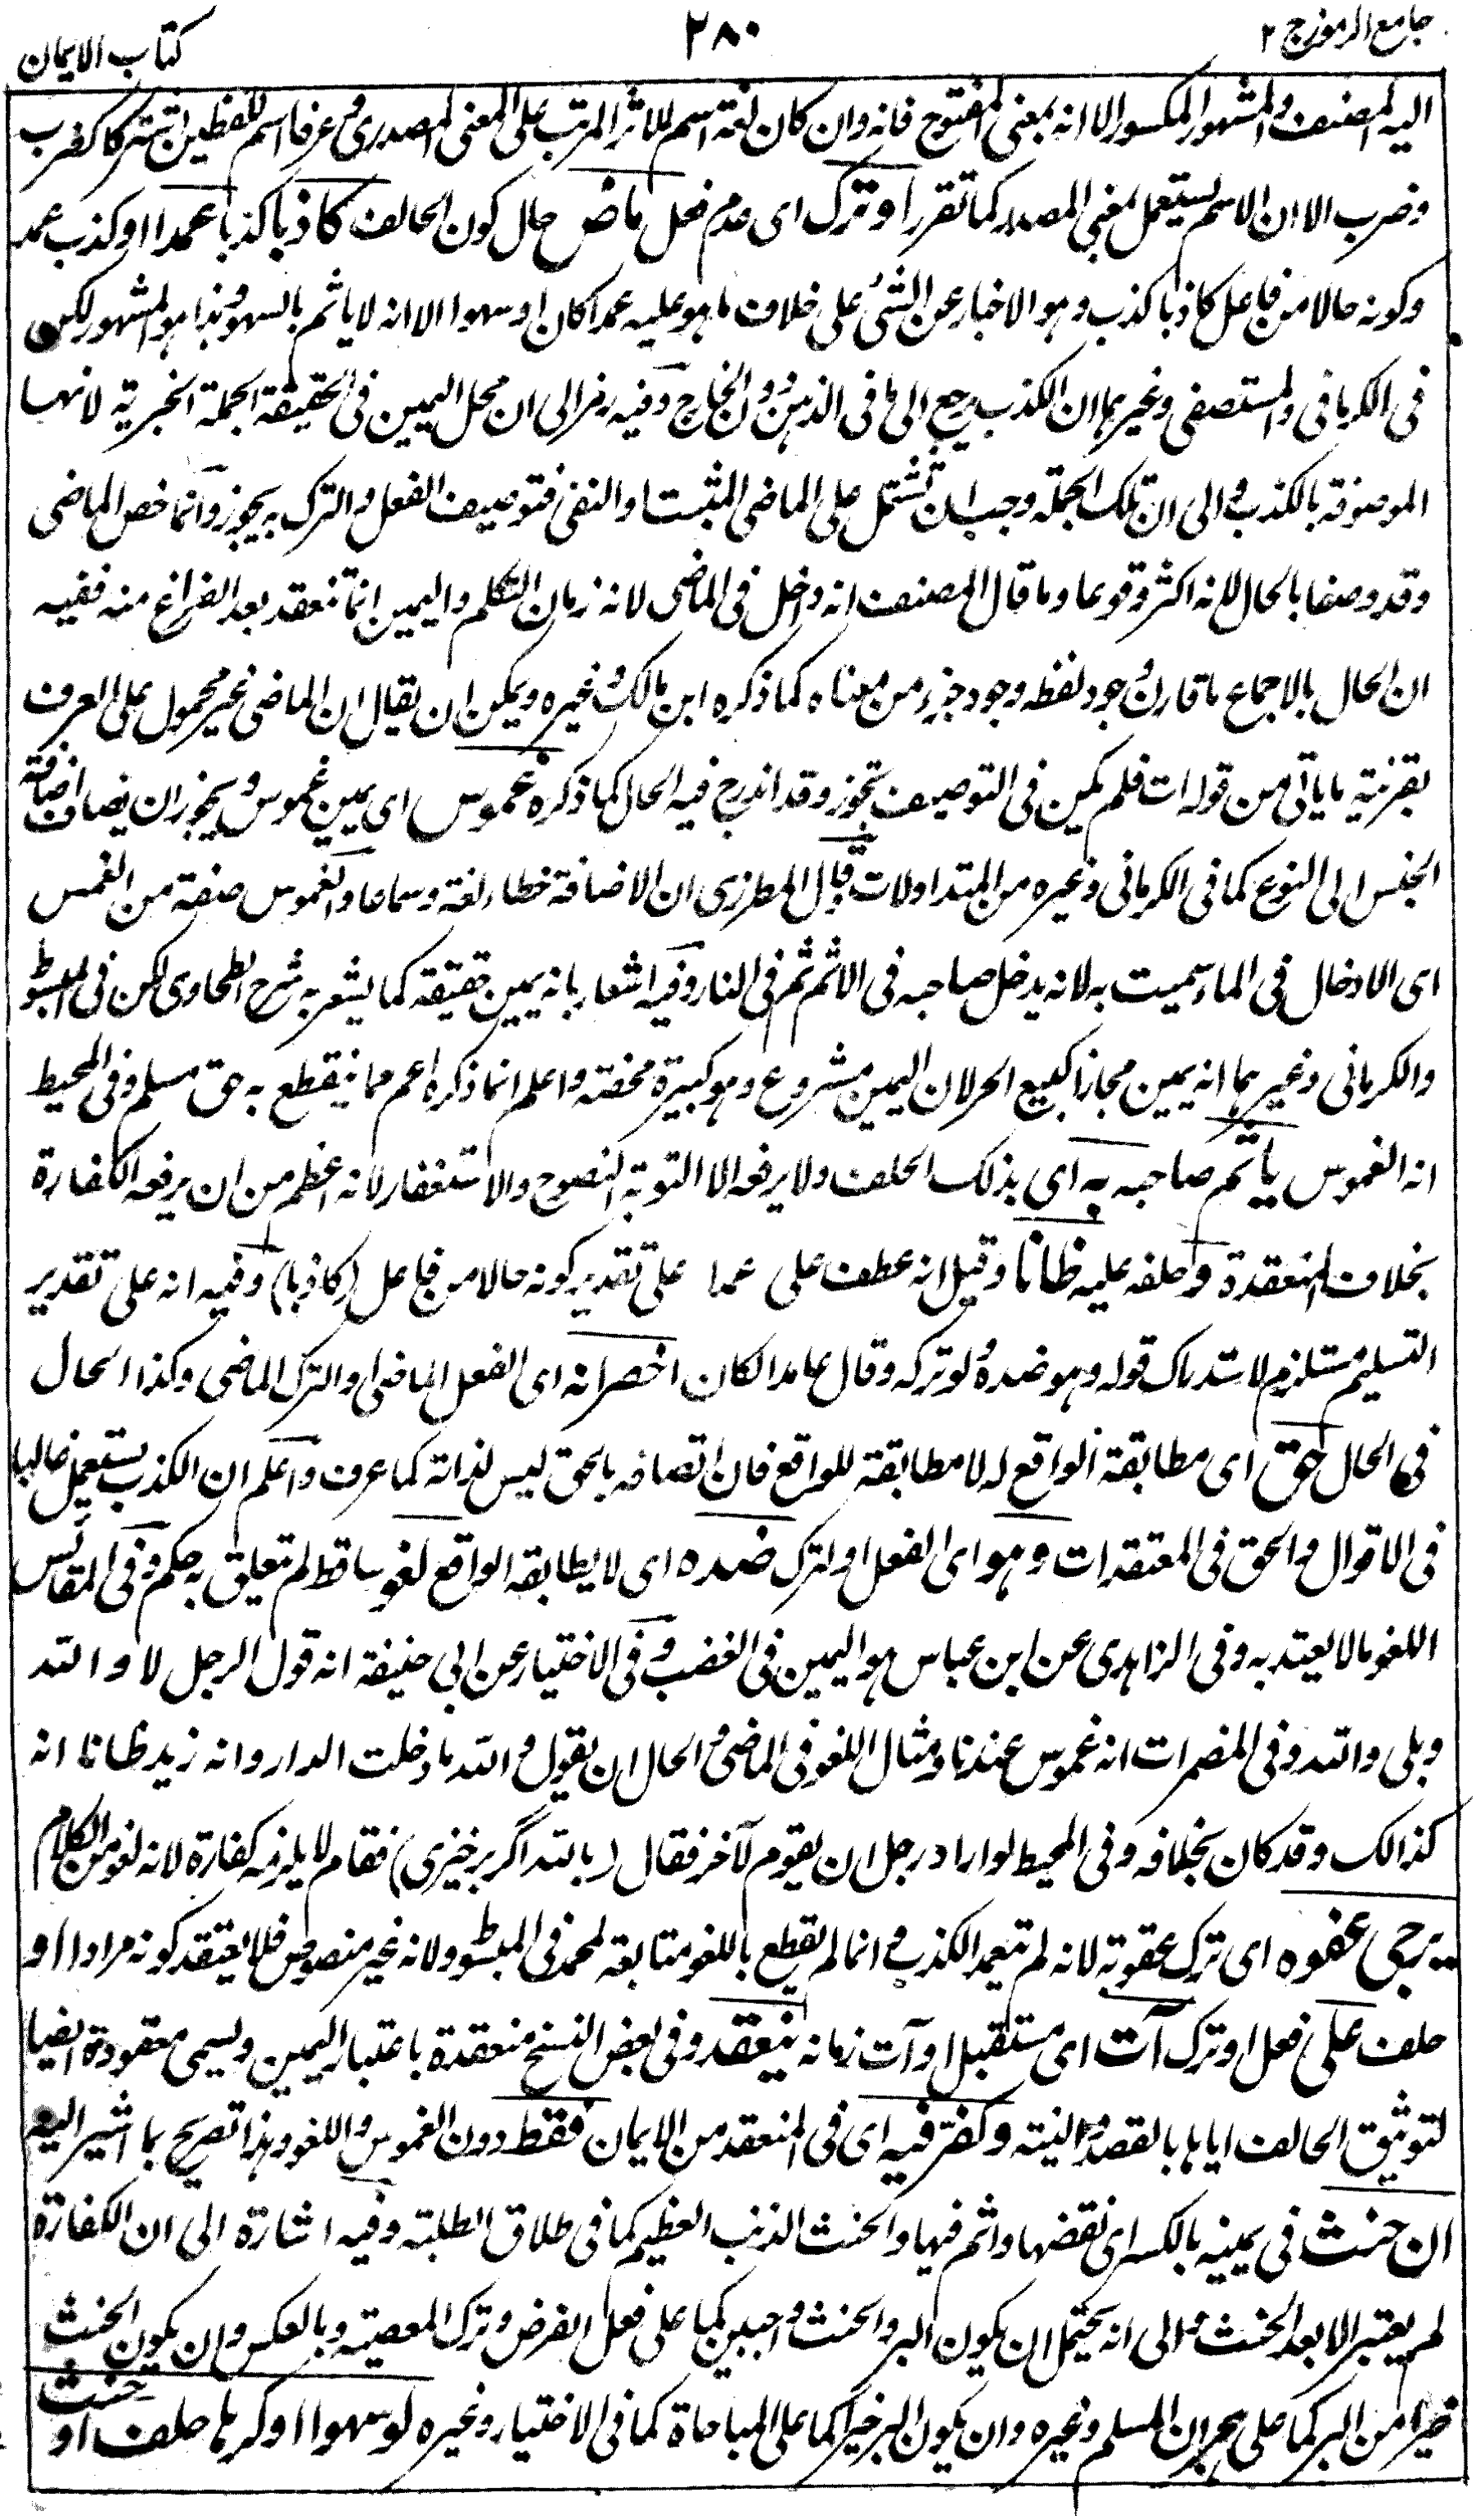 جامع الرموز ج ٢
٢٨٠
كتاب الايمان
اليه المصنف والمشهور المكسور الا انه بمعنى المفتوح فانه وان كان لغة اسم للاثر المرتب على المعنى المصدرى وعرفا اسم للفظين اشتركا كضرب
وضرب الا ان الاسم يستعمل بمعنى المصدر كما تقرر او ترك اى عدم فعل ماض حال كون الحالف كاذبا كذبا عمدا او كذب عمد
وكونه حالا من فاعل كاذبا كذب وهو الاخبار عن الشئ على خلاف ما هو عليه عمدا كان او سهوا الا انه لا ياثم بالسهو وهذا هو المشهور لكن
فى الكرمانى والمستصفى وغيرهما ان الكذب يرجع الى ما فى الذهن دون الخارج وفيه رمز الى ان محل اليمين فى الحقيقة الجملة الخبرية لانها
الموصوفة بالكذب والى ان تلك الجملة وجب ان تشتمل على الماضى المثبت او النفى فتوصيف الفعل والترك به يجوز وانما خص الماضى
وقد وصفا بالحال لانه اكثر وقوعا وما قال المصنف انه داخل فى الماضى لانه زمان التكلم واليمين انما تنعقد بعد الفراغ منه ففيه
ان الحال بالاجماع ما قارن وجود لفظه وجود جزء من معناه كما ذكره ابن مالك وغيره ويمكن ان يقال ان الماضى غير محمول على العرف
بقرينة ما ياتى من قوله ات فلم يكن فى التوصيف تجوز وقد اندرج فيه الحال كما ذكره غموس اى يمين غموس ويجوز ان يضاف اضافة
الجنس الى النوع كما فى الكرمانى وغيره من المتداولات قال المطرزى ان الاضافة خطاء لغة وسماعا والغموس صفة من الغمس
اى الادخال فى الماء سميت به لانه يدخل صاحبه فى الاثم ثم فى النار وفيه اشعار بانه يمين حقيقة كما يشعر به شرح الطحاوى لكن فى المبسوط
والكرمانى وغيرهما انه يمين مجازا كبيع الحر لان اليمين مشروع وهو كبيرة محضة واعلم انما ذكره اعم مما ينقطع به حق مسلم وفى المحيط
انه الغموس ياثم صاحبه به اى بذلك الحلف ولا يرفعه الا التوبة النصوح والاستغفار لانه اعظم من ان يرفعه الكفارة
بخلاف المنعقدة وحلفه عليه ظانا وقيل انه عطف على عمدا على تقدير كونه حالا من فاعل (كاذبا) وفيه انه على تقدير
التسليم مستلزم لاستدراك قوله وهو ضده ولو تركه وقال عامدا لكان اخصر انه اى الفعل الماضى او الترك الماضى وكذا الحال
فى الحال حق اى مطابقة الواقع له لا مطابقة للواقع فان اتصافه بالحق ليس لذاته كما عرف واعلم ان الكذب يستعمل غالبا
فى الاقوال والحق فى المعتقدات وهو اى الفعل او الترك ضده اى لا يطابقه الواقع لغو ساقط لم تعلق به حكم وفى المقائيس
اللغو ما لا يعتد به وفى الزاهدى عن ابن عباس هو اليمين فى الغضب وفى الاختيار عن ابى حنيفة انه قول الرجل لا والله
وبلى والله وفى المضمرات انه غموس عندنا ومثال اللغو فى الماضى والحال ان يقول والله ما دخلت الدار وانه زيد ظانا انه
كذالك وقد كان بخلافه وفى المحيط لو اراد رجل ان يقوم لآخر فقال (بالله اگر برخيزى) فقام لا يلزمه كفارة لانه لغو من الكلام
يرجى عفوه اى ترك عقوبة لانه لم يتعمد الكذب وانما لم يقطع باللغو متابعة لمحمد فى المبسوط ولانه غير منصوص فلا يعتقد كونه مرادا او
حلف على فعل او ترك آت اى مستقبل او آت زمانه ينعقد وفى بعض النسخ منعقدة باعتبار اليمين ويسمى معقودة ايضا
لتوثيق الحالف اياها بالقصد والنية وكفر فيه اى فى المنعقد من الايمان فقط دون الغموس واللغو وهذا تصريح بما اشير اليه
ان حنث فى يمينه بالكسر اى نقضها واثم فيها والحنث الذنب العظيم كما فى طلاق الطلبة وفيه اشارة الى ان الكفارة
لم يعتبر الا بعد الحنث والى انه يحتمل ان يكون البر والحنث واجبين كما على فعل الفرض وترك المعصية وبالعكس وان يكون الحنث
خيرا من البر كما على هجران المسلم ونحوه وان يكون البر خيرا كما على المباحاة كما فى الاختيار ونحوه لو سهوا او كرها حلف او حنث